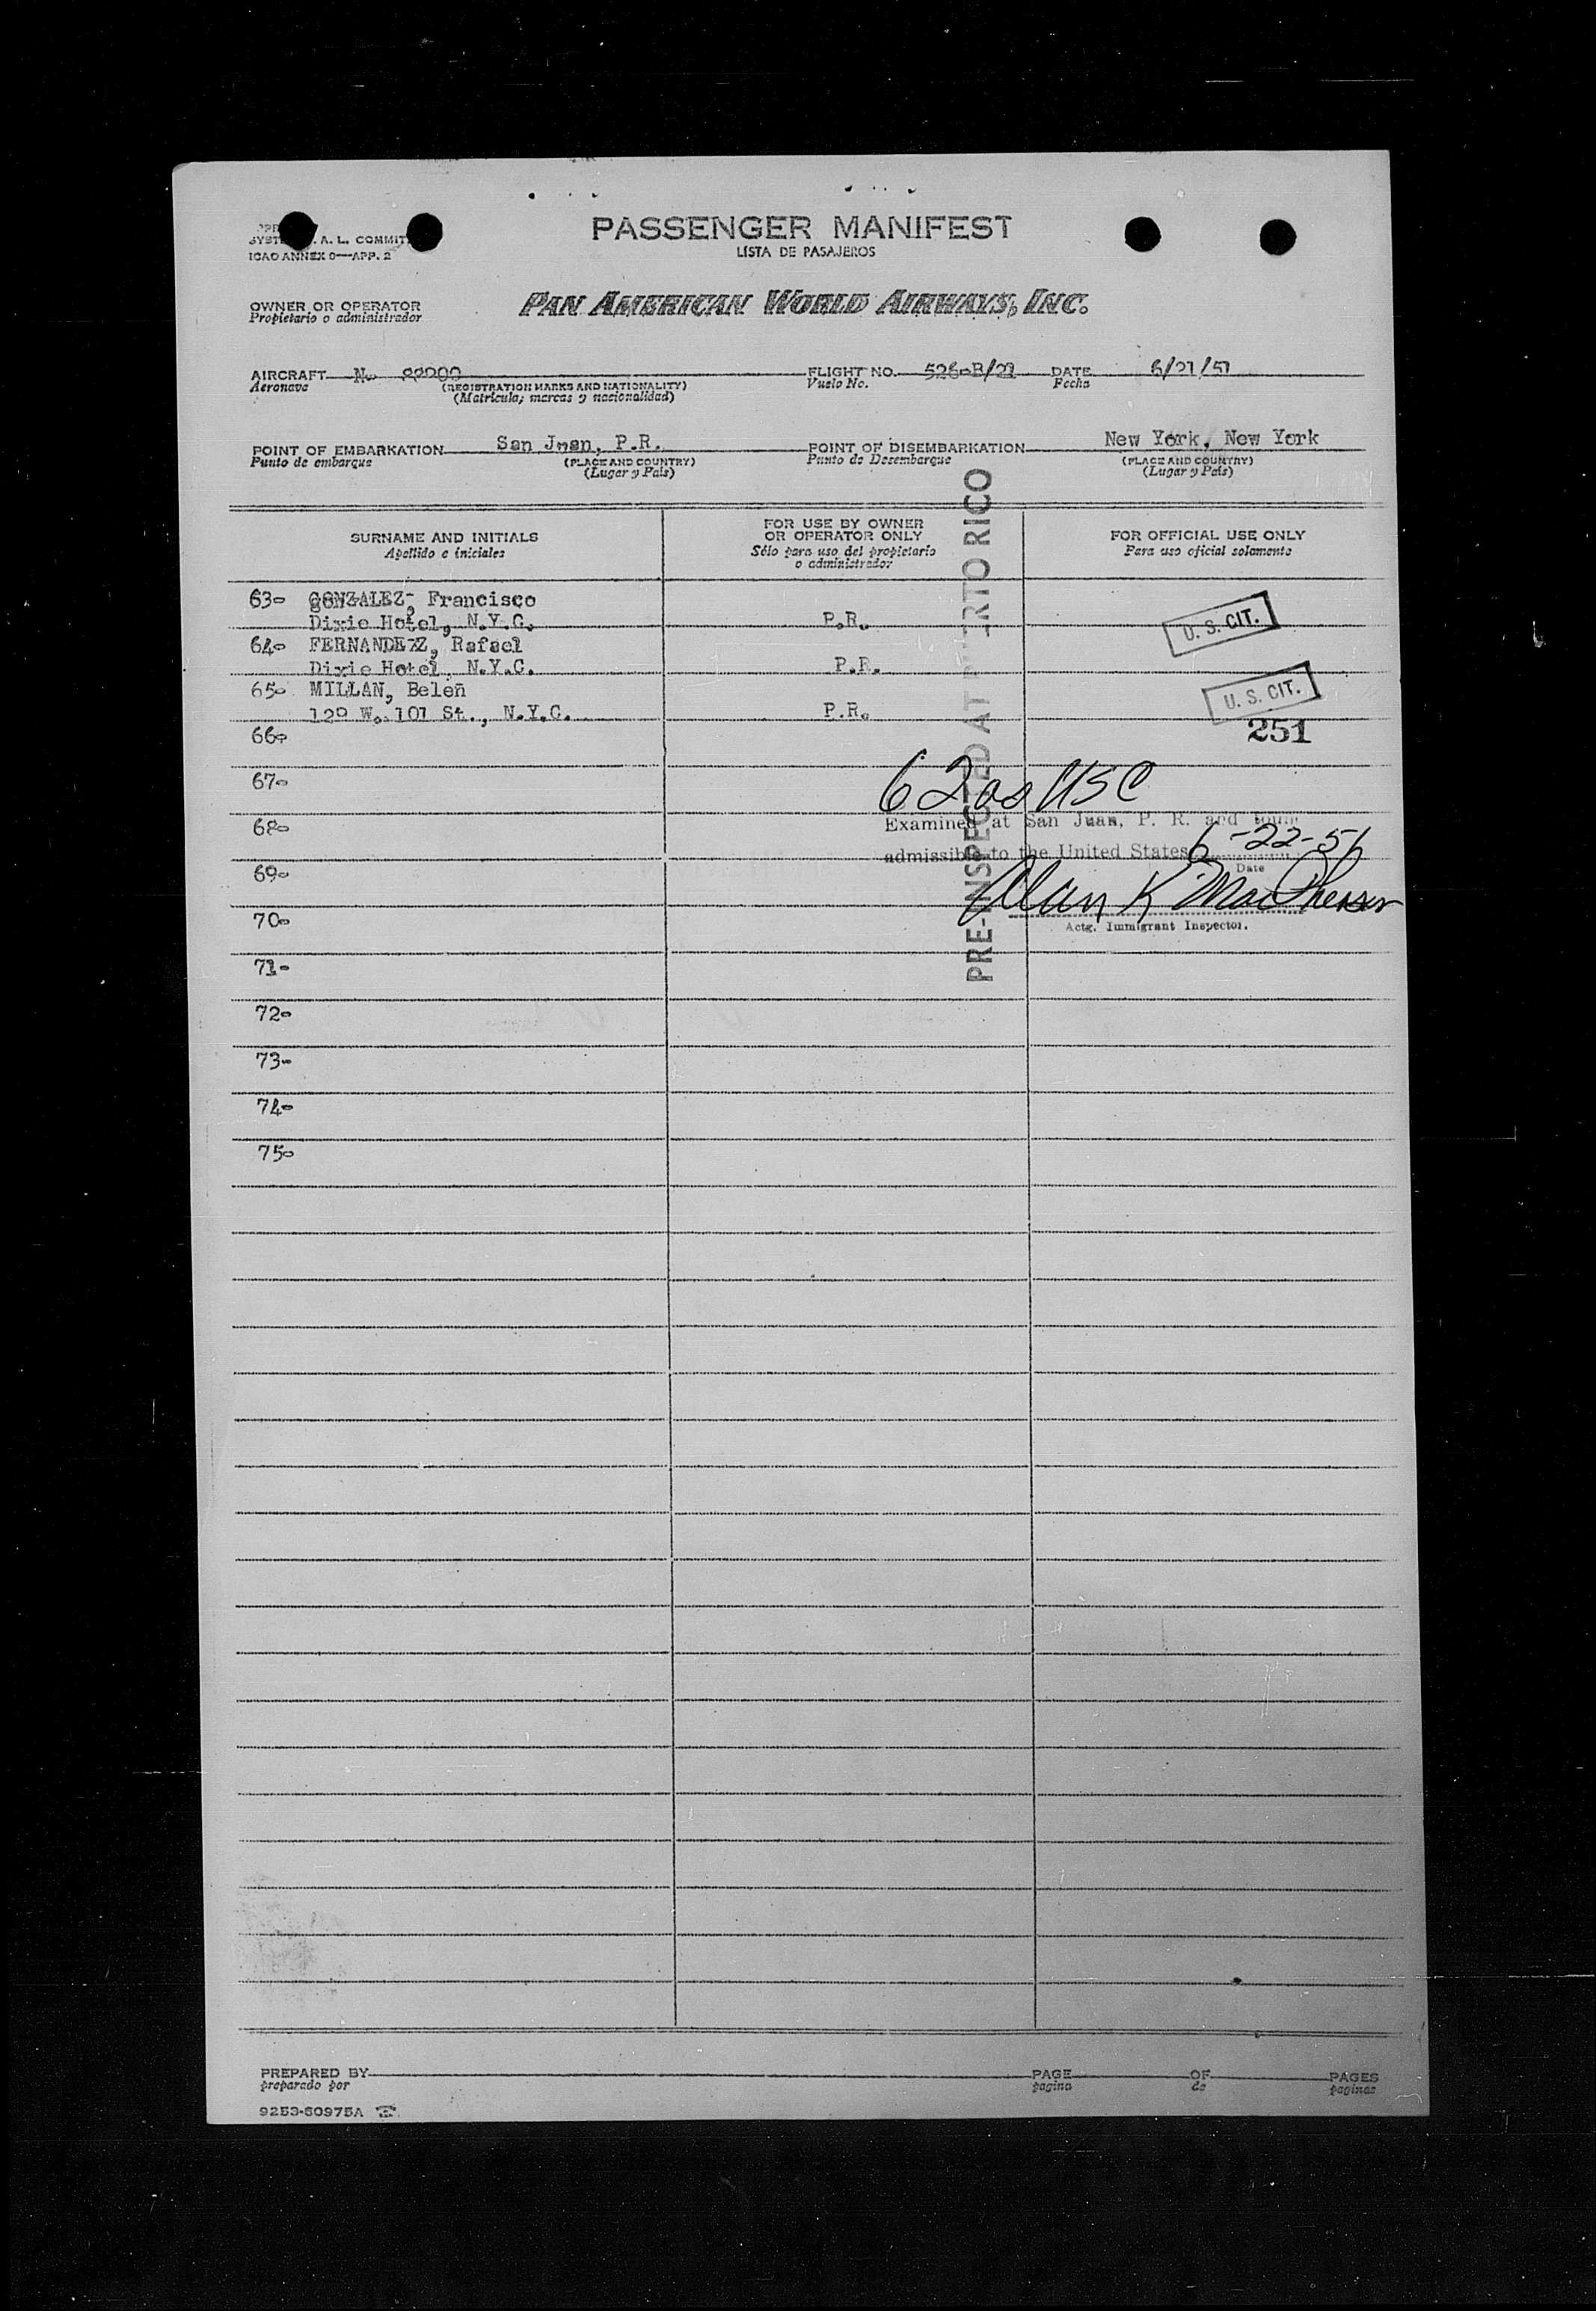 PASSENGER MANIFEST
LISTA DE PASAJEROS
A. L. COMMIT
ICAO ANNEX 9—APP. 2
OWNER OR OPERATOR
Propietario o administrador
PAN AMERICAN WORLD AIRWAYS, INC.
AIRCRAFT N-
Aeronave
(REGISTRATION MARKS AND NATIONALITY)
(Matricula; marcas y nacionalidad)
FLIGHT NO. 526-B/21 DATE 6/21/51
Vuelo No. Fecha
POINT OF EMBARKATION San Juan, P.R.
Punto de embarque
(PLACE AND COUNTRY)
(Lugar y País)
POINT OF DISEMBARKATION New York, New York
Punto de Desembarque
(PLACE AND COUNTRY)
(Lugar y País)
SURNAME AND INITIALS
Apellido e iniciales
FOR USE BY OWNER
OR OPERATOR ONLY
Sólo para uso del propietario
o administrador
FOR OFFICIAL USE ONLY
Para uso oficial solamente
63- GONZALEZ, Francisco
Dixie Hotel, N.Y.C. P.R. U. S. CIT.
64- FERNANDEZ, Rafael
Dixie Hotel, N.Y.C. P.R.
65- MILLAN, Belen
129 W. 101 St., N.Y.C. P.R. U. S. CIT.
251
66-
67-
62 as USC
68-
Examined at San Juan, P. R. and found
admissible to the United States 6-22-51
Date
69-
Alan K MacPherson
70-
Actg. Immigrant Inspector.
PRE-INSPECTED AT PUERTO RICO
71-
72-
73-
74-
75-
PREPARED BY
preparado por
PAGE OF PAGES
pagina de paginas
9253-60975A